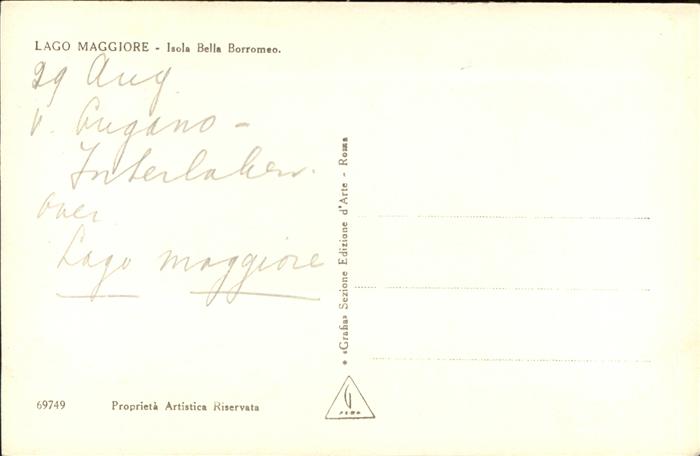 LAGO MAGGIORE - Isola Bella Borromeo.
29 Aug.
v. Lugano -
Interlaken.
over
Lago maggiore
* «Grafia» Sezione Edizione d'Arte - Roma
69749 Proprietà Artistica Riservata